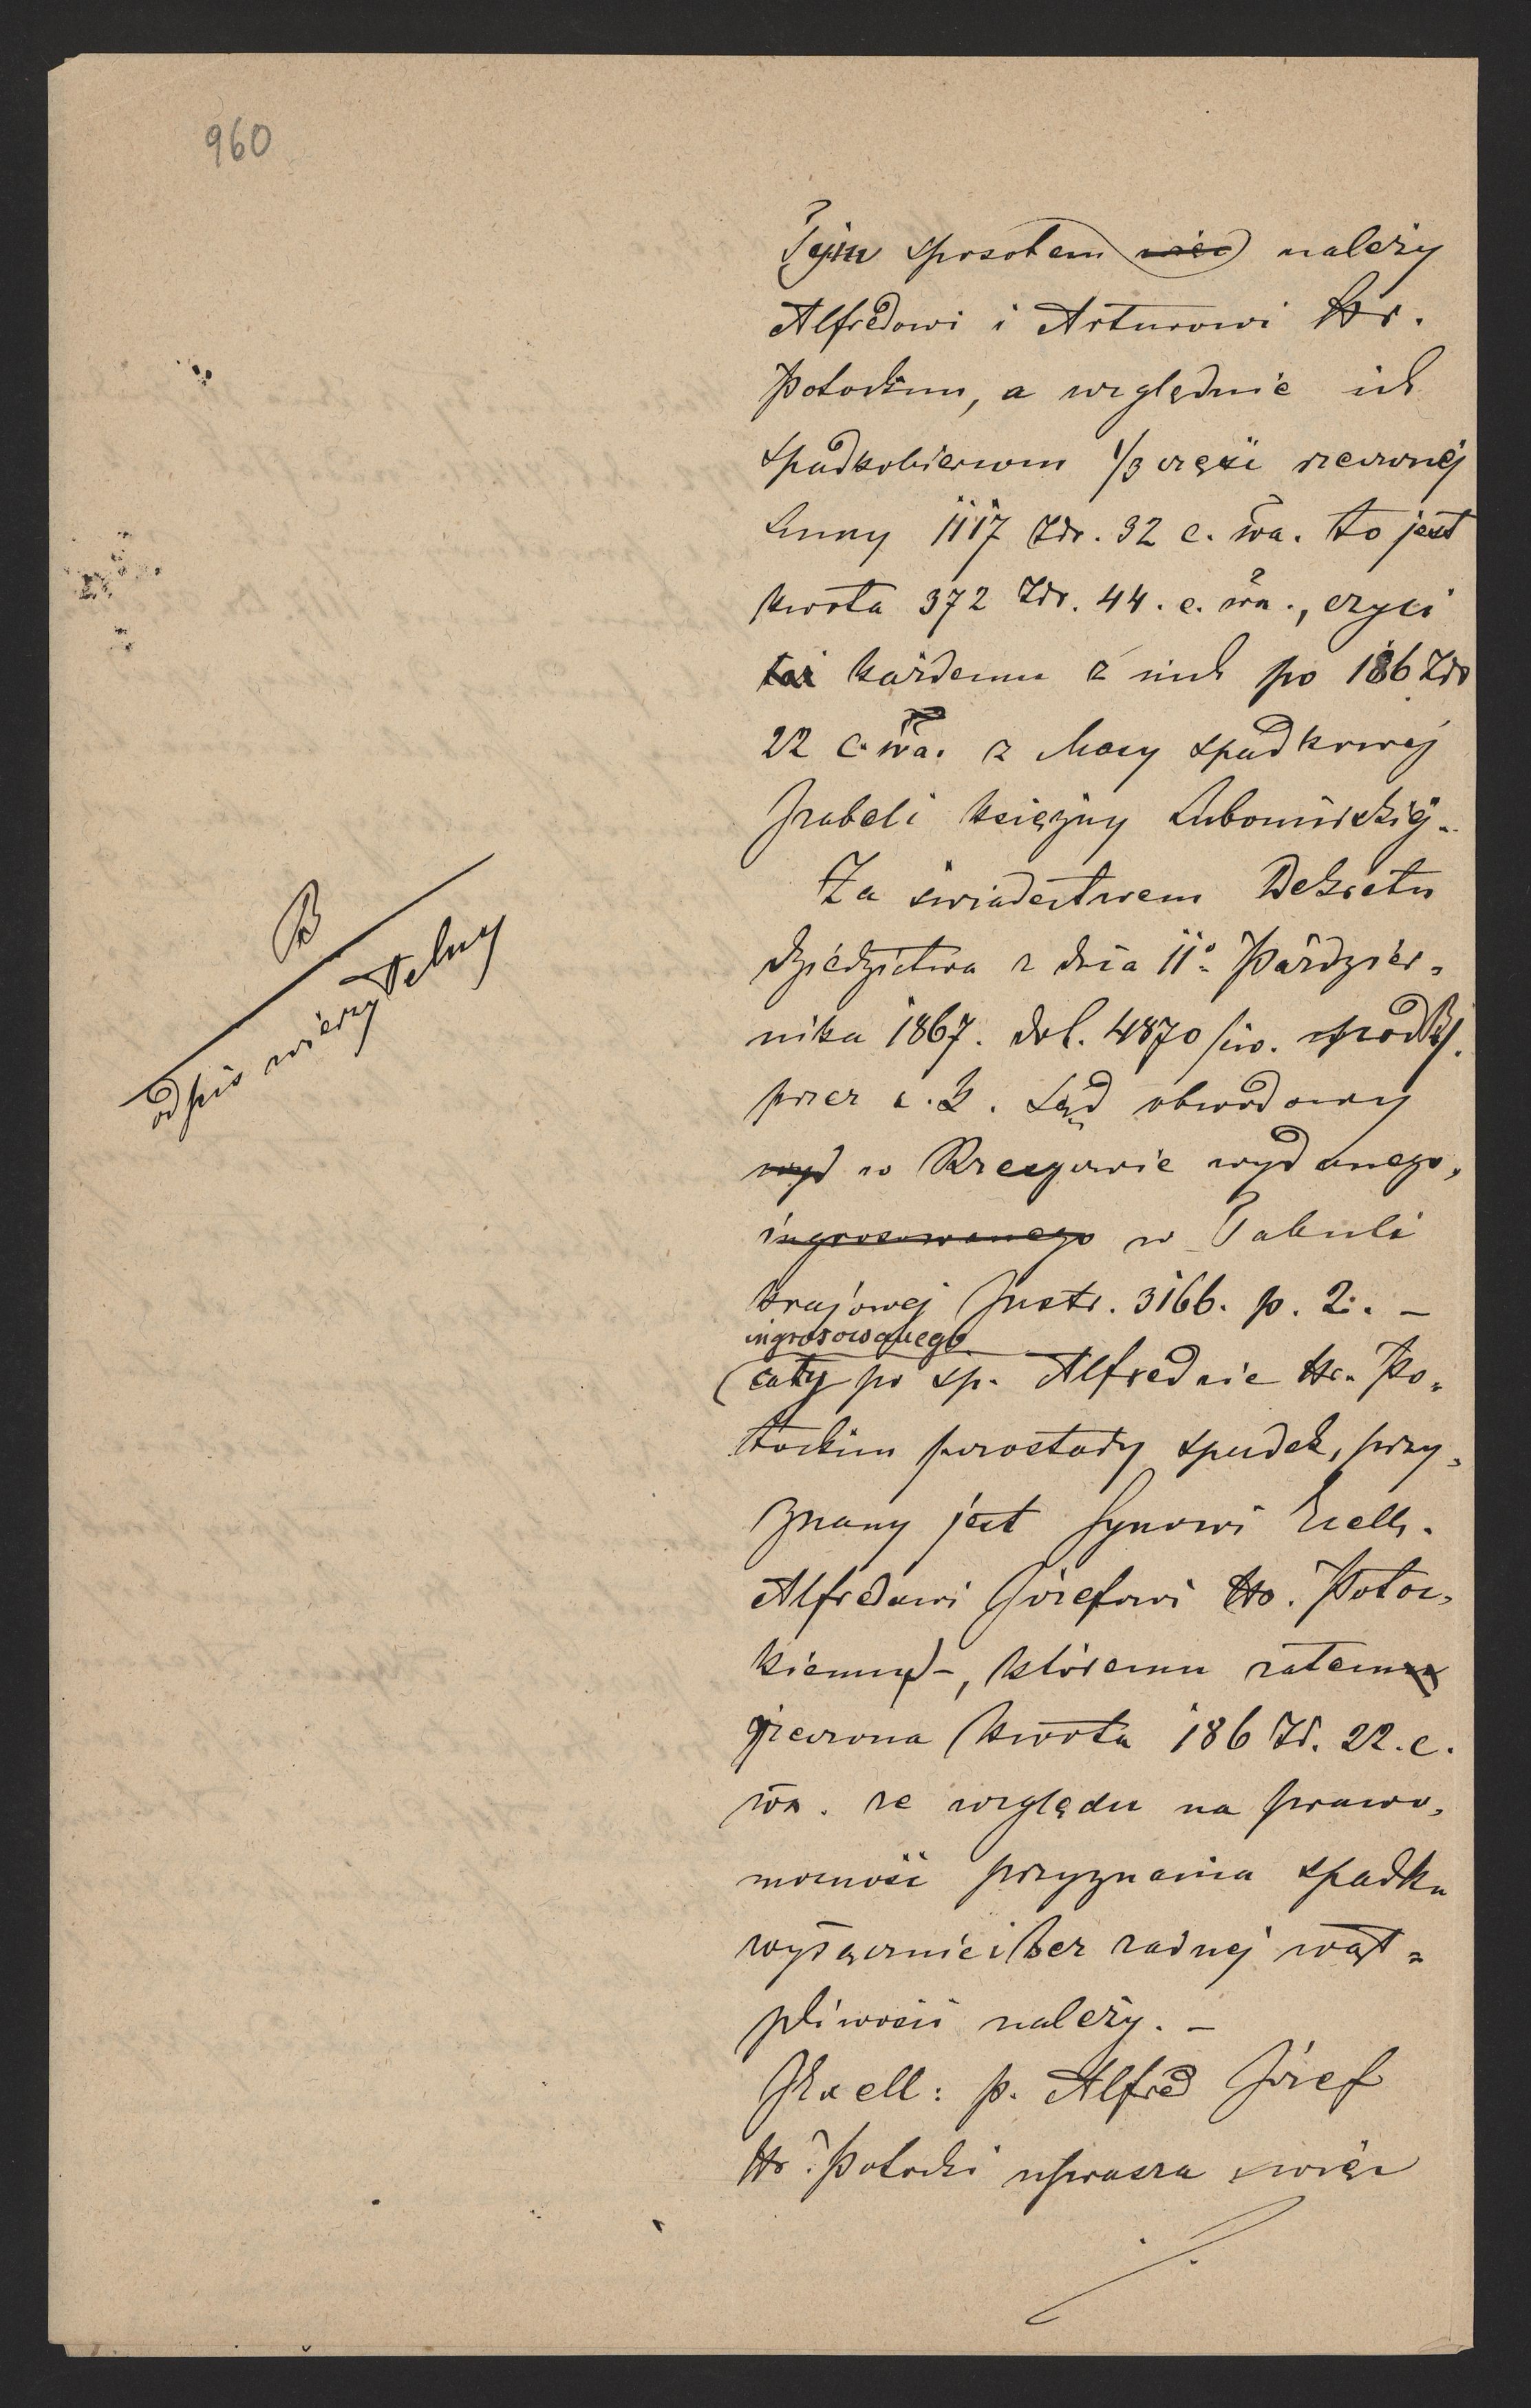 960
Tym sposobem więc należy
Alfredowi i Arturowi Hr.
Potockim, a względnie ich
spadkobiercom 1/3 części rzeczonej
Sumy 1117 Złr. 32 c. wa. to jest
kwota 372 Złr. 44. c. wa., czyli
każdemu z nich po 186 Złr
22 c. wa. z Masy spadkowej
Izabeli księżny Lubomirskiej.
Za świadectwem Dekretu
dziedzictwa z dnia 11º Paździer=
nika 1867. dol. 4870/civ.
przez c. k. Sąd obwodowy
wyd w Rzeszowie wydanego,
ingrosowanego w Tabuli
krajowej Instr. 3166. p. 2. –
ingrosowanego
(cały po śp. Alfredzie Hr. Po=
tockim pozostały spadek, przy=
znany jest Synowi Excell.
Alfredowi Józefowi Hr. Potoc=
kiemu) –, któremu zatem
rzeczona kwota 186 Zł. 22. c.
wa. ze względu na prawo=
mocność przyznania spadku
wyłącznie i bez żadnej wąt=
pliwości należy. –
Excell: p. Alfred Józef
Hr. Potocki uprasza więc
B
odpis wierzytelny